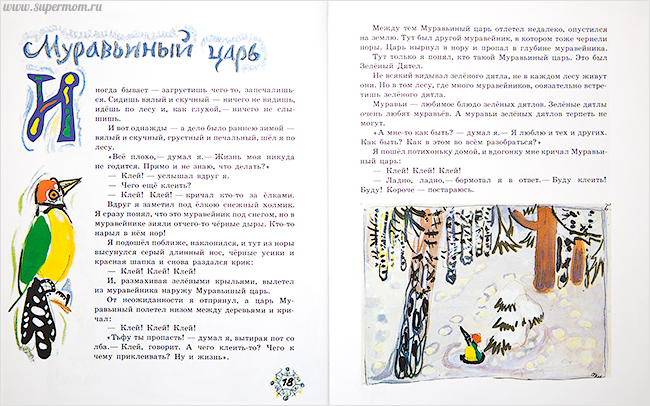 www.supermom.ru
Муравьиный царь
Иногда бывает — загрустишь чего-то, запечалишь-
ся. Сидишь вялый и скучный — ничего не видишь,
идёшь по лесу и, как глухой,— ничего не слы-
шишь.
И вот однажды — а дело было раннею зимой —
вялый и скучный, грустный и печальный, шёл я по
лесу.
«Всё плохо,— думал я.— Жизнь моя никуда
не годится. Прямо и не знаю, что делать?»
— Клей! — услышал вдруг я.
— Чего ещё клеить?
— Клей! Клей! — кричал кто-то за ёлками.
Вдруг я заметил под ёлкою снежный холмик.
Я сразу понял, что это муравейник под снегом, но в
муравейнике зияли отчего-то чёрные дыры. Кто-то
нарыл в нём нор!
Я подошёл поближе, наклонился, и тут из норы
высунулся серый длинный нос, чёрные усики и
красная шапка и снова раздался крик:
— Клей! Клей! Клей!
И, размахивая зелёными крыльями, вылетел
из муравейника наружу Муравьиный царь.
От неожиданности я отпрянул, а царь Му-
равьиный полетел низом между деревьями и кри-
чал:
— Клей! Клей! Клей!
«Тьфу ты пропасть! — думал я, вытирая пот со
лба.— Клей, говорит. А чего клеить-то? Чего к
чему приклеивать? Ну и жизнь».
18
Между тем Муравьиный царь отлетел недалеко, опустился
на землю. Тут был другой муравейник, в котором тоже чернели
норы. Царь нырнул в нору и пропал в глубине муравейника.
Тут только я понял, кто такой Муравьиный царь. Это был
Зелёный Дятел.
Не всякий видывал зелёного дятла, не в каждом лесу живут
они. Но в том лесу, где много муравейников, обязательно встре-
тишь зелёного дятла.
Муравьи — любимое блюдо зелёных дятлов. Зелёные дятлы
очень любят муравьёв. А муравьи зелёных дятлов терпеть не
могут.
«А мне-то как быть? — думал я.— Я люблю и тех и других.
Как быть? Как в этом во всём разобраться?»
Я пошёл потихоньку домой, и вдогонку мне кричал Муравьи-
ный царь:
— Клей! Клей! Клей!
— Ладно, ладно,— бормотал я в ответ.— Буду клеить!
Буду! Короче — постараюсь.